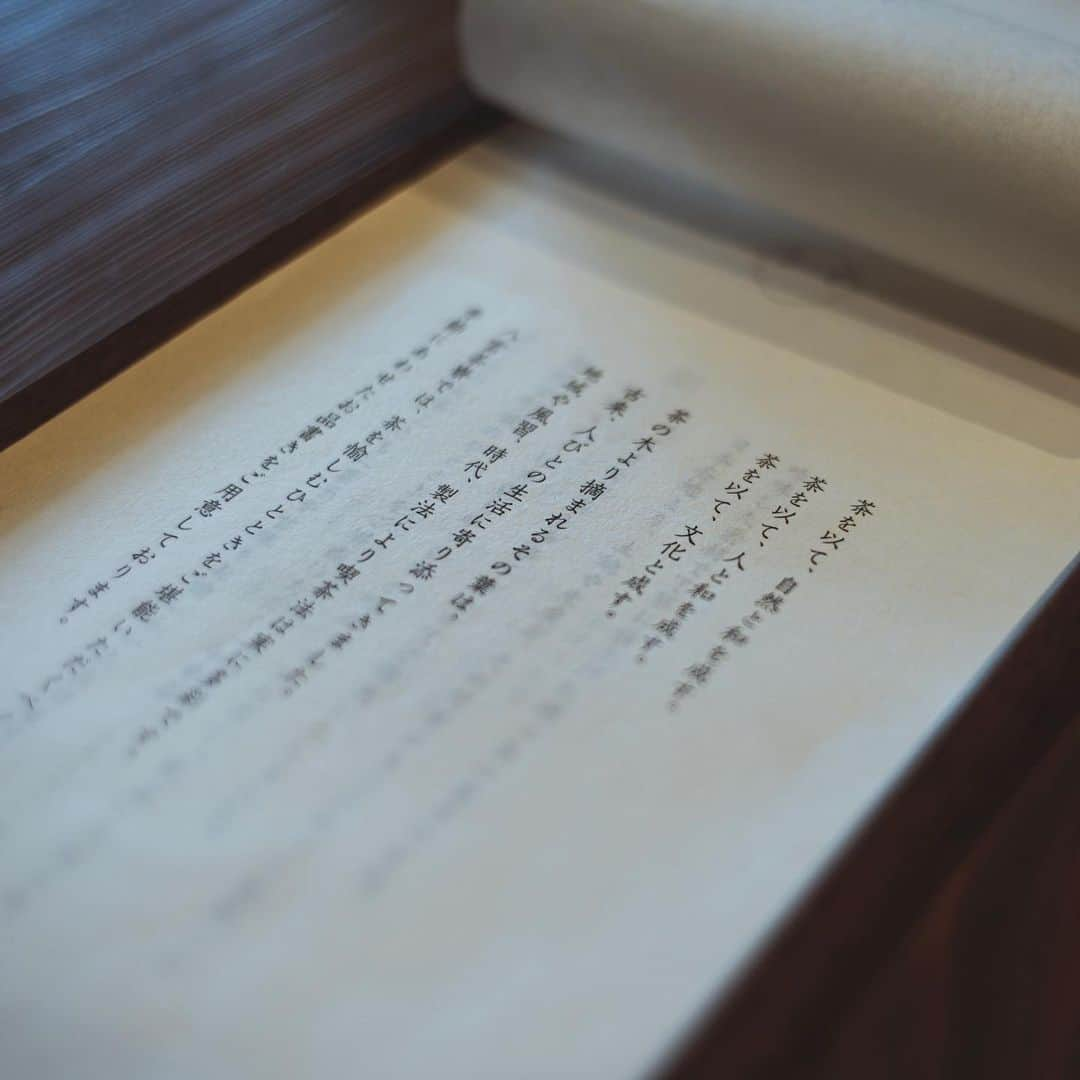 茶を以て、自然と和を成す。
茶を以て、人と和を成す。
茶を以て、文化と成す。
茶の木より摘まれるその葉は、
古来、人びとの生活に寄り添ってきました。
地域や風習、時代、製法により喫茶法は実にま
では、茶を愉しむひとときをご堪能いただく
あわせたお品書きをご用意しております。